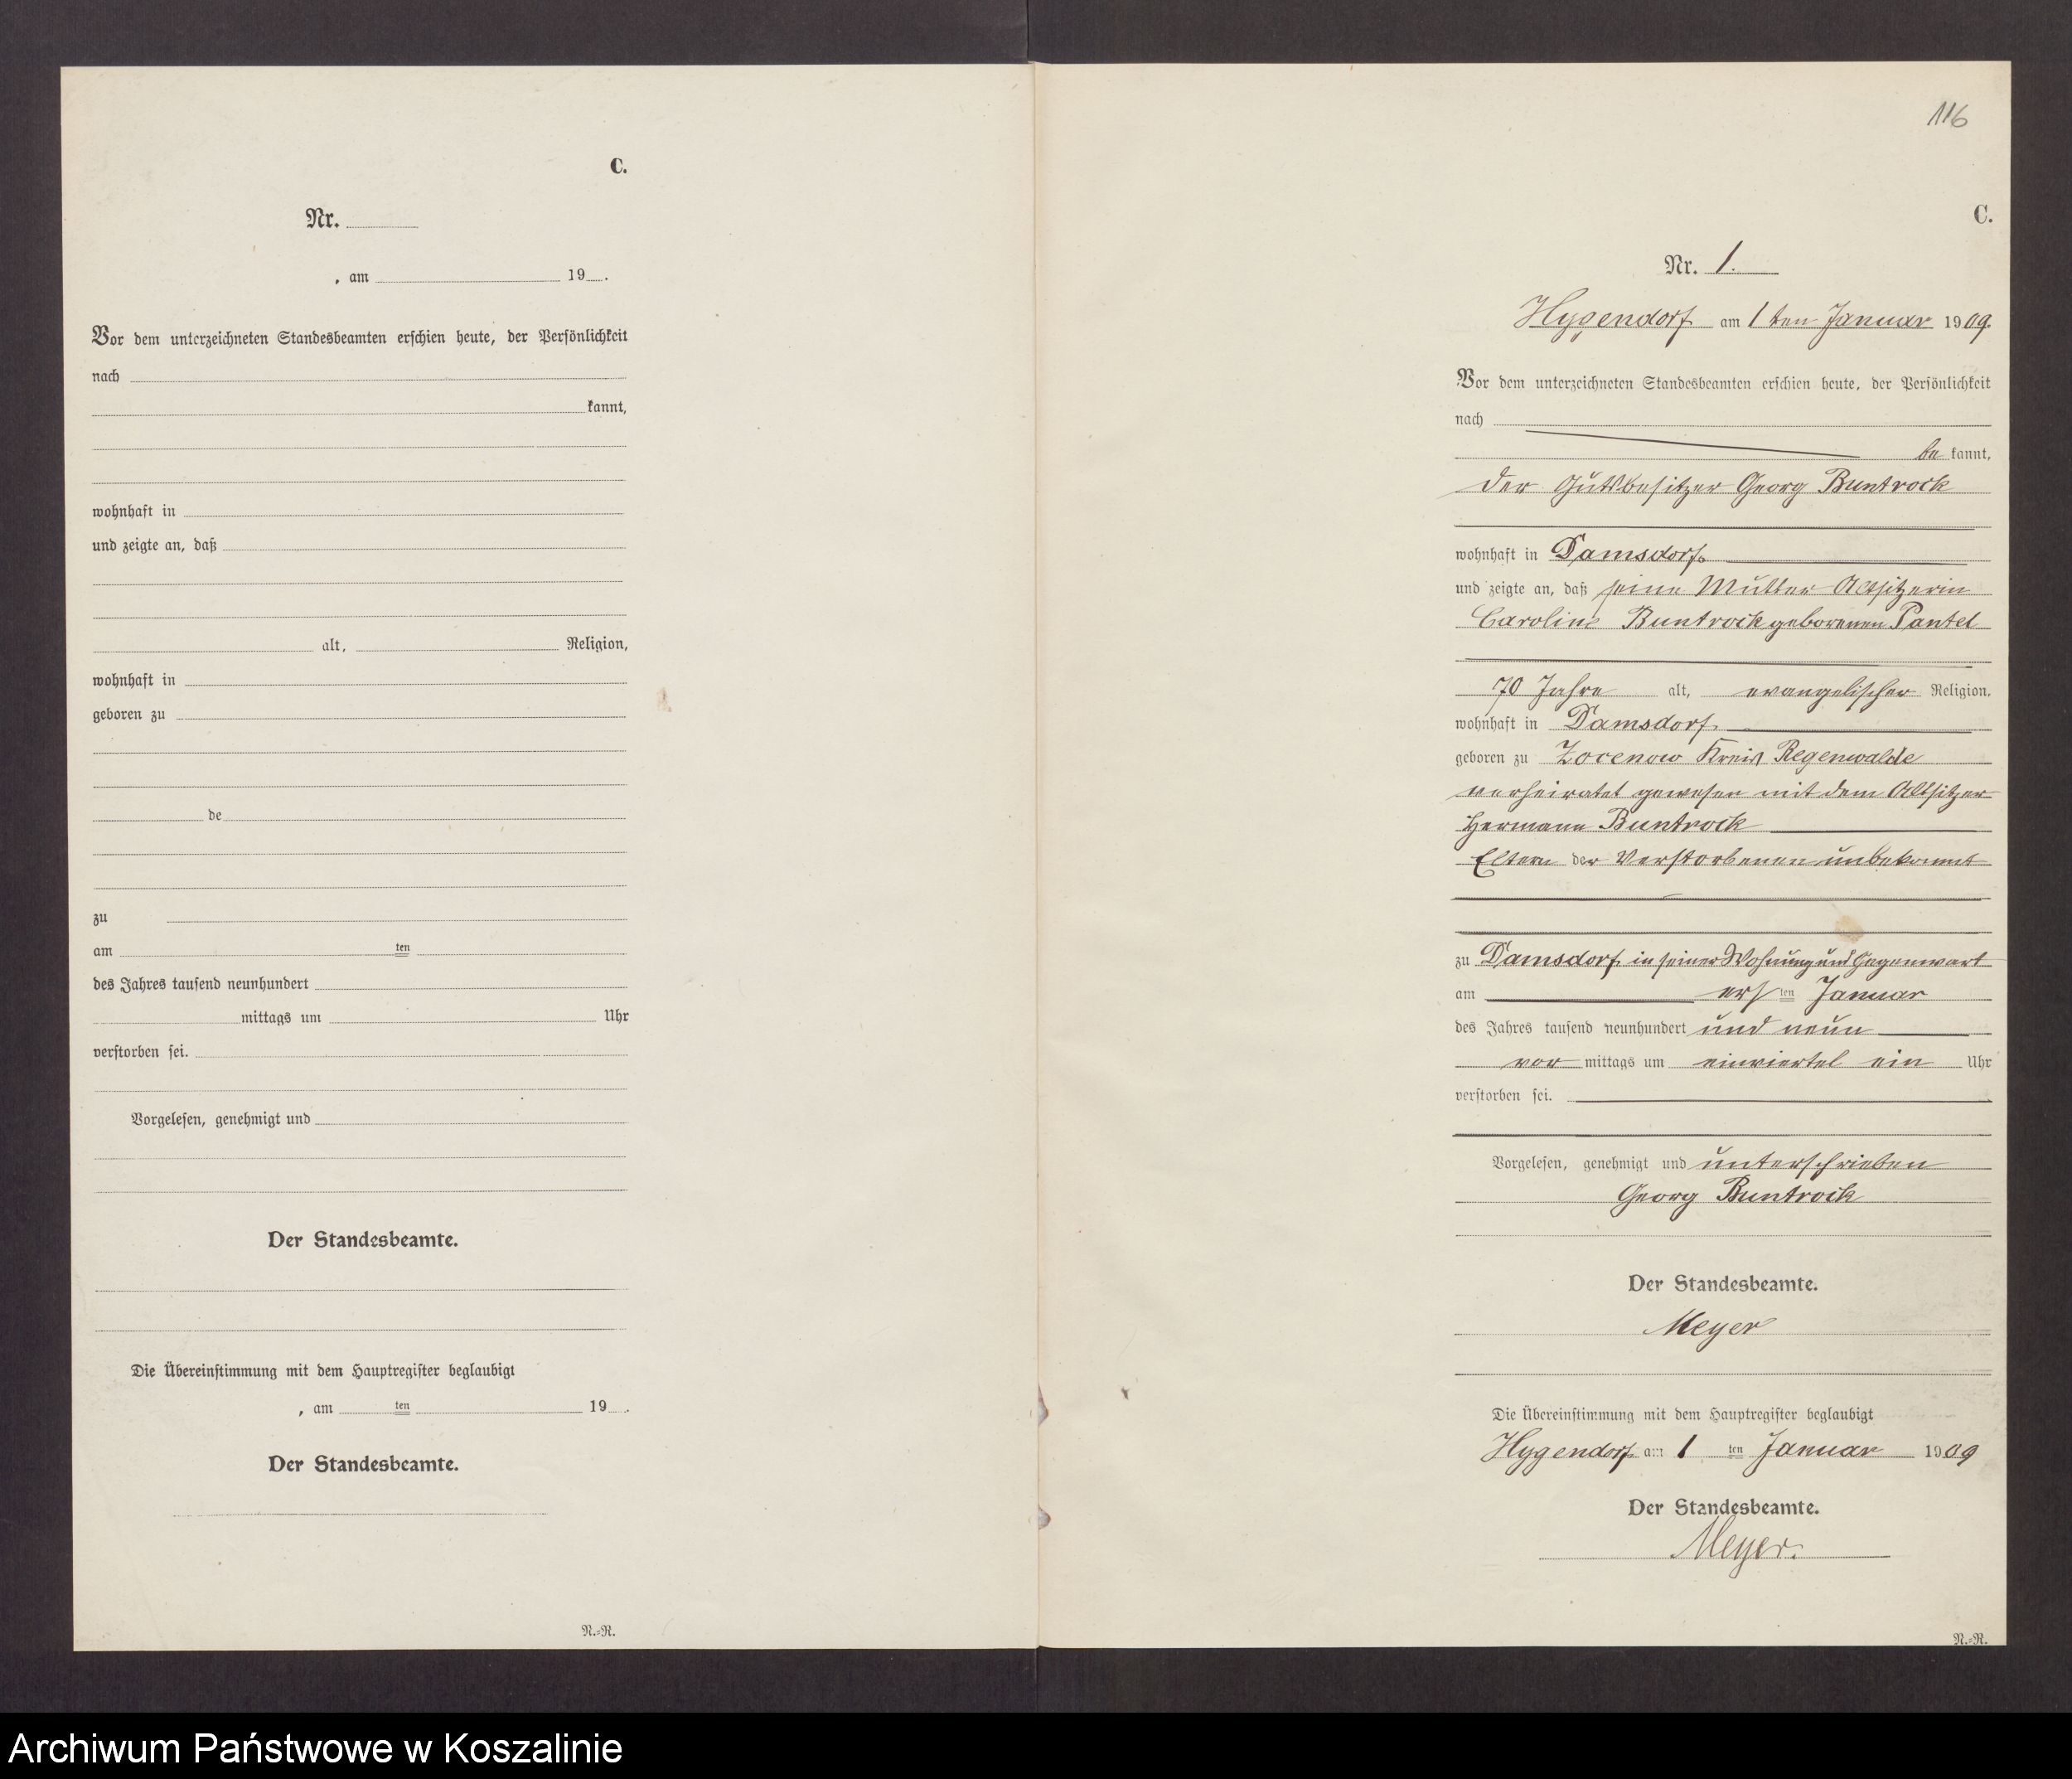 C.
Nr.
, am 19 .
Vor dem unterzeichneten Standesbeamten erschien heute, der Persönlichkeit
nach
kannt,
wohnhaft in
und zeigte an, daß
alt, Religion,
wohnhaft in
geboren zu
de
zu
am ten
des Jahres tausend neunhundert
mittags um Uhr
verstorben sei.
Vorgelesen, genehmigt und
Der Standesbeamte.
Die Übereinstimmung mit dem Hauptregister beglaubigt
, am ten 19 .
Der Standesbeamte.
N.=N.
116
C.
Nr. 1.
Hygendorf am 1 ten Januar 1909.
Vor dem unterzeichneten Standesbeamten erschien heute, der Persönlichkeit
nach
be kannt,
der Gutsbesitzer Georg Buntrock
wohnhaft in Damsdorf
und zeigte an, daß seine Mutter Altsitzerin
Caroline Buntrock geborenen Pantel
70 Jahre alt, evangelischer Religion,
wohnhaft in Damsdorf
geboren zu Zocenow Kreis Regenwalde
verheiratet gewesen mit dem Altsitzer
Hermann Buntrock
Eltern der Verstorbenen unbekannt
zu Damsdorf in seiner Wohnung und Gegenwart
am ers ten Januar
des Jahres tausend neunhundert und neun
vor mittags um einviertel ein Uhr
verstorben sei.
Vorgelesen, genehmigt und unterschrieben
Georg Buntrock
Der Standesbeamte.
Meyer
Die Übereinstimmung mit dem Hauptregister beglaubigt
Hygendorf am 1 ten Januar 1909
Der Standesbeamte.
Meyer.
N.=N.
Archiwum Państwowe w Koszalinie